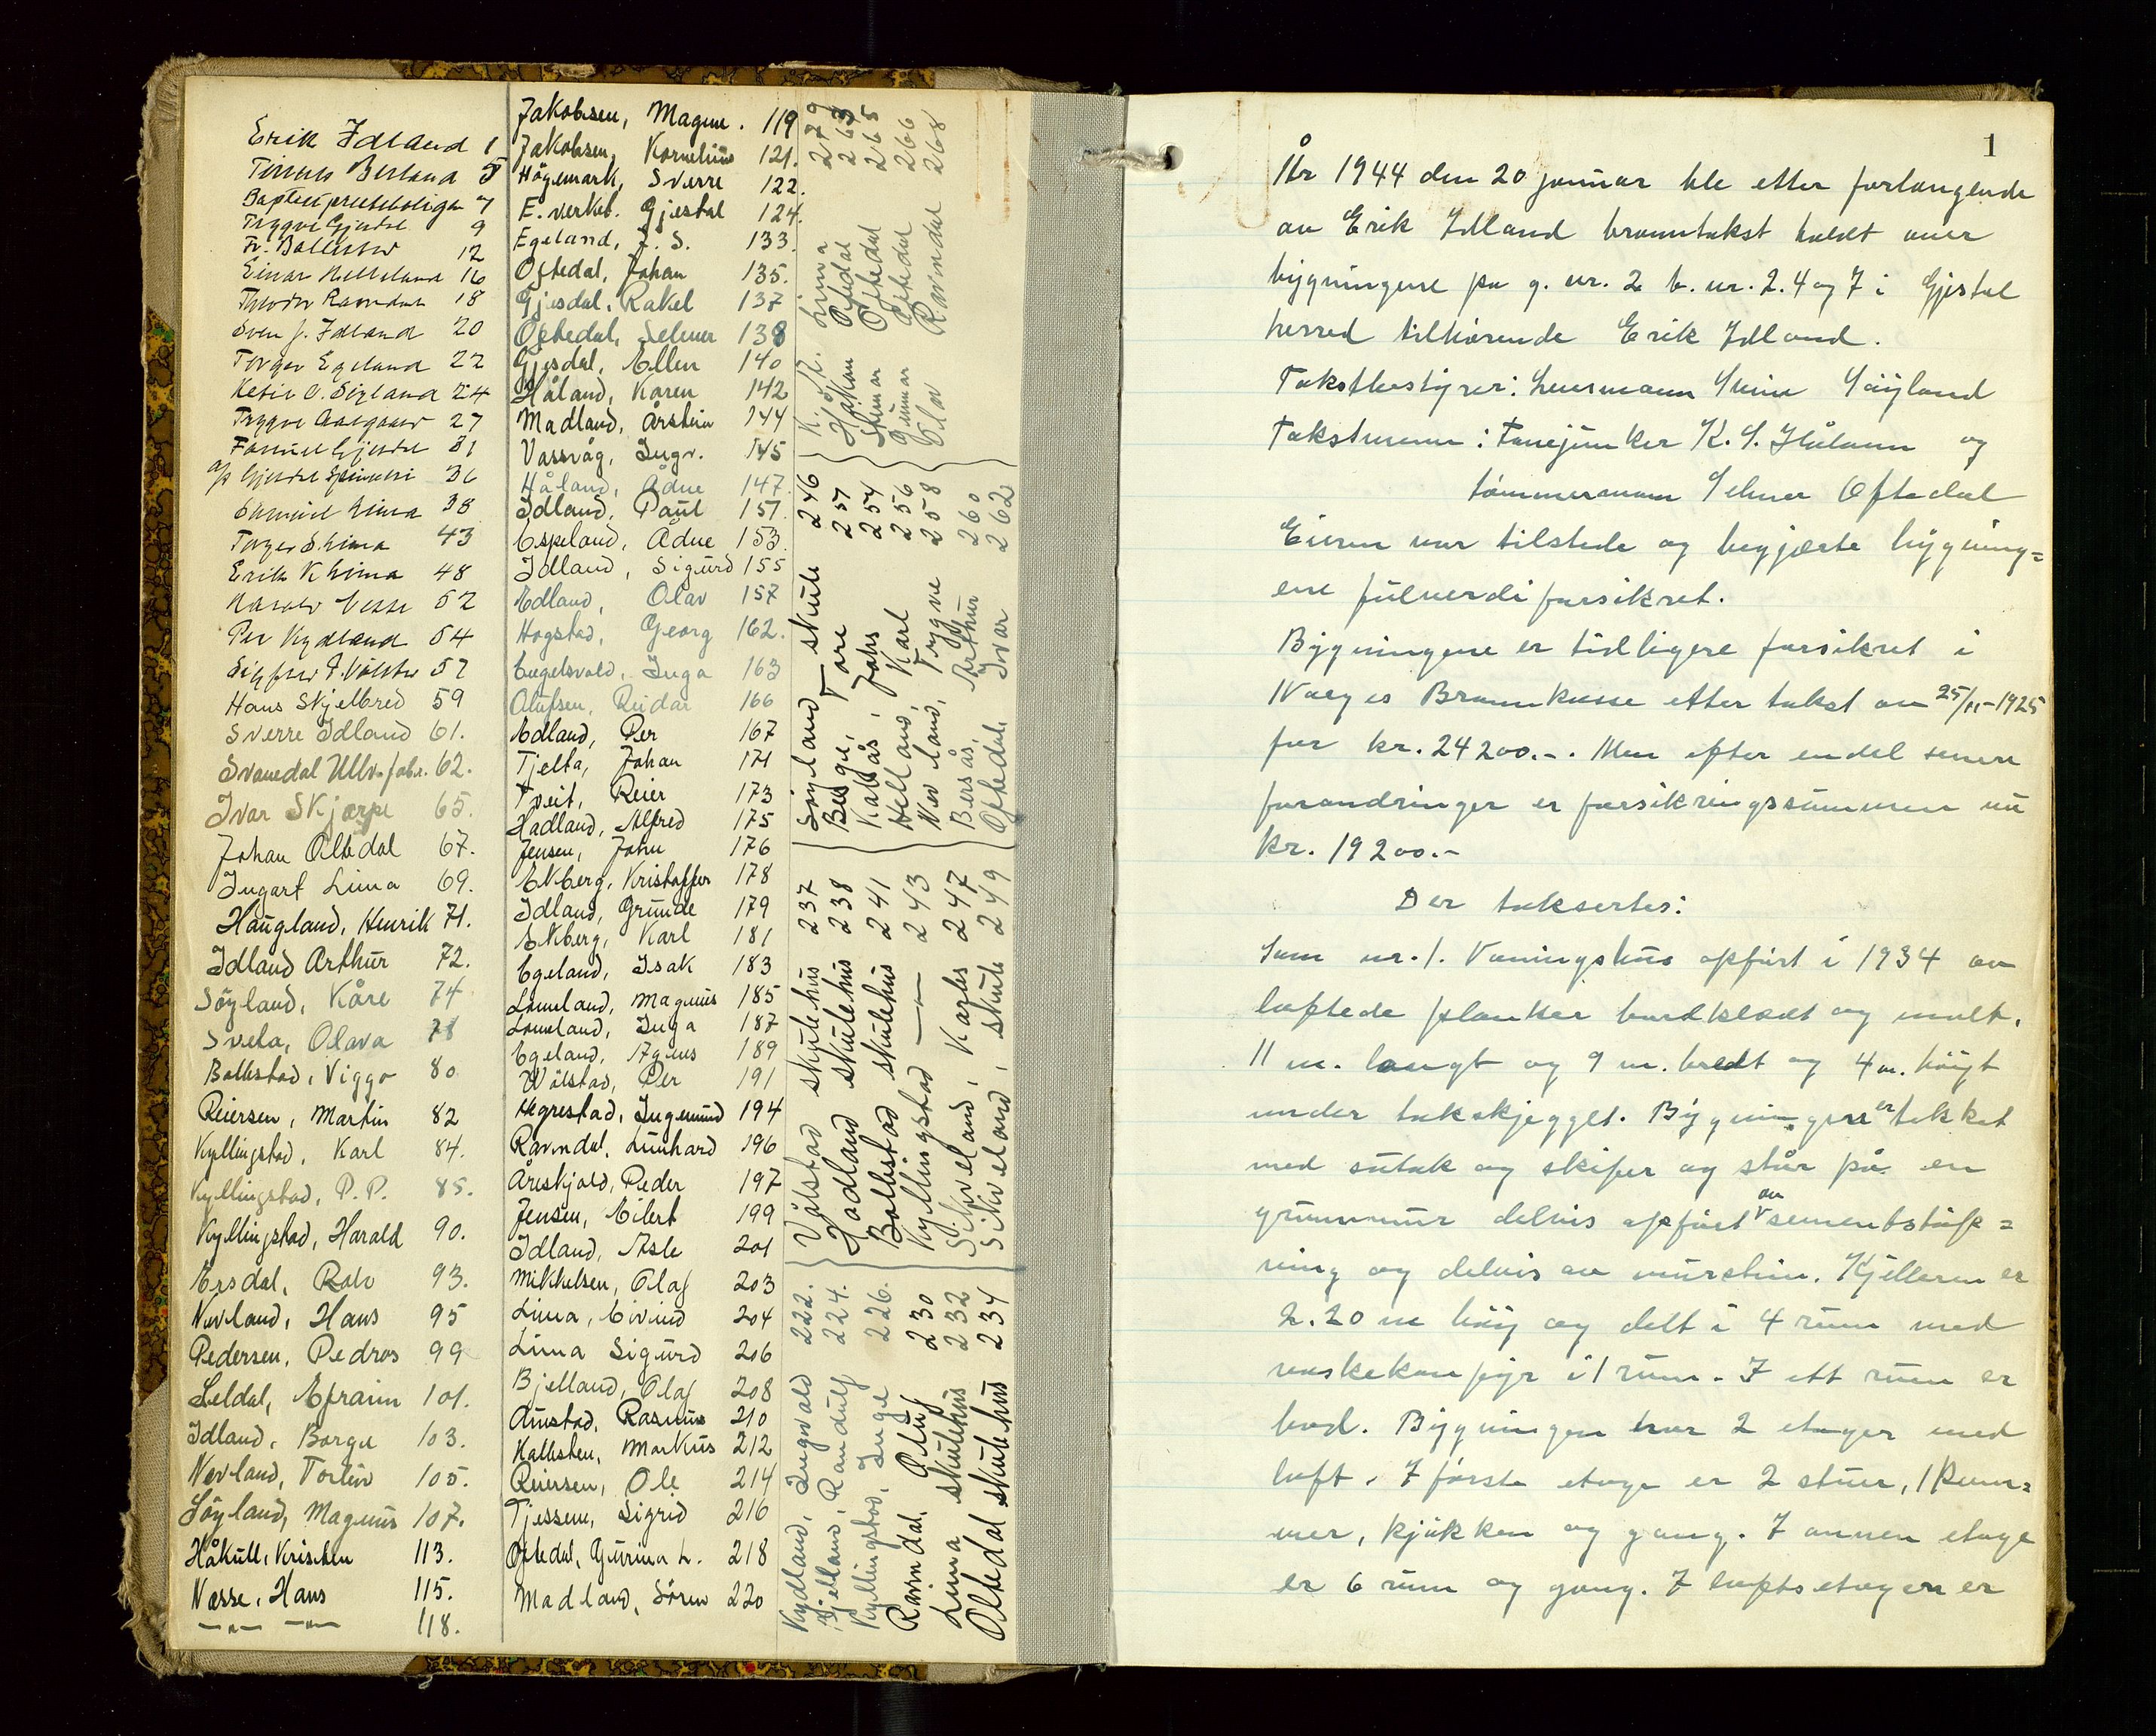 Erik Idland 1
Tønnes Berland 5
Baptistpresteboligen 7
Trygve Gjesdal 9
Fr. Bollestad 12
Einar Helleland 16
Theodor Ravndal 18
Sven J. Idland 20
Torger Egeland 22
Ketil O. Søyland 24
Trygve Aasgaard 27
Samuel Gjesdal 31
A/s Gjesdal Spinneri 36
Samuel Lima 38
Torger S Lima 43
Erik K Lima 48
Harald Vasse 52
Per Kydland 54
Sigfred P. Vølstad 57
Hans Skjelbred 59
Sverre Idland 61.
Svanedal Ullv.fabr. 62.
Ivar Skjærpe 65.
Johan Oltedal 67.
Ingart Lima 69.
Haugland, Henrik 71.
Idland Arthur 72.
Søyland, Kåre 74
Svela, Olava 78
Bollestad, Viggo 80
Reiersen, Martin 82
Kyllingstad, Karl 84.
Kyllingstad, P. P. 85.
Kyllingstad, Harald 90.
Årsdal, Rolv 93.
Nevland, Hans 95
Pedersen, Pedros 99
Seldal, Efraim 101.
Idland, Borge 103.
Nevland, Torleiv 105.
Søyland, Magnus 107.
Håkull, Kristen 113.
Næsse, Hans 115.
—"— —"— 118.
Jakobsen, Magne. 119
Jakobsen, Kornelius 121.
Høgemark, Sverre 122.
E. verket. Gjestal 124.
Egeland, J. S. 133.
Oftedal, Johan 135.
Gjesdal, Rakel 137
Oftedal, Selmer 138
Gjesdal, Ellen 140
Håland, Karen 142
Madland, Årstein 144
Vassvåg, Ingv. 145
Håland, Ådne 147
Idland, Paul 151
Espeland, Ådne 153.
Idland, Sigurd 155
Edland, Olav 157
Hogstad, Georg 162.
Engelsvold, Inga 163
Olufsen, Reidar 166
Edland, Per 167
Tjelta, Johan 171
Tveit, Reier 173
Hadland, Alfred 175
Jensen, John 176
Ekberg, Kristoffer 178
Idland, Grunde 179
Ekberg, Karl 181
Egeland, Isak 183
Lomeland, Magnus 185
Lomeland, Inga 187
Egeland, Agnes 189
Wølstad, Per 191
Hegrestad, Ingemund 194
Ravndal, Lunhard 196
Åreskjold, Peder 197
Jensen, Eilert 199
Idland, Asle 201
Mikkelsen, Olaf 203
Lima, Eivind 204
Lima Sigurd 206
Bjelland, Olaf 208
Austad, Rasmus 210
Kallesten, Markus 212
Reiersen, Ole 214
Tjessem, Sigrid 216
Oftedal, Gurina L. 218
Madland, Søren 220
Kydland, Ingvald 222.
Bjelland, Randulf 224.
Kyllingstad, Inge 226.
Ravndal, Oluf 230
Lima skulehus 232
Oltedal skulehus 234
Vølstad skulehus 237
Hadland skulehus 238
Bollestad skulehus 241
Kyllingstad —"— 243
Sikveland, Karles 247
Sikveland, skule 249
Søyland skule 246
Berge, Tore 251
Kallås, John 254
Helland, Karl 256
Nevland, Trygve 258
Bersås, Arthur 260
Oftedal, Ivar 262
Lima K. O. R. 279
Oftedal Håkon 263
Oftedal Steinar 265
Oftedal Gunnar 266
Ravndal Olav 268
1
År 1944 den 20 januar ble etter forlangende
av Erik Idland branntakst holdt over
bygningene på g. nr. 2 b. nr. 2. 4 og 7 i Gjestal
herred tilhørende Erik Idland.
Takstbestyrer: Lensmann Svein Søyland
Takstmenn: Fanejunker K. S. Håland og
tømmermann Selmer Oftedal
Eieren var tilstede og begjærte bygning=
ene fullverdiforsikret.
Bygningene er tidligere forsikret i
Norges Brannkasse etter takst av 25/11-1925
for kr. 24200.-. Men efter endel senere
forandringer er forsikringssummen nu
kr. 19200.-
Der taksertes:
Som nr. 1. Våningshus opført i 1934 av
laftede planker bordklædt og malt.
11 m. langt og 9 m. bredt og 4 m. høigt
under takskjegget. Bygningene er tekket
med sutak og skifer og står på en
grunnmur delvis opført av sementstøp=
ning og delvis av murstein. Kjelleren er
2.20 m høig og delt i 4 rum med
vaskekomfyr i 1 rum. I ett rum er
bad. Bygningen har 2 etager med
loft. I første etage er 2 stuer, 1 kam=
mer, kjøkken og gang. I annen etage
er 6 rum og gang. I loftsetagen er